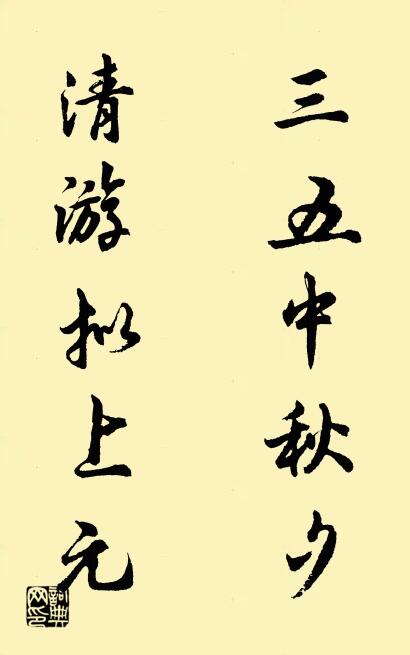 三五中秋夕
清游拟上元